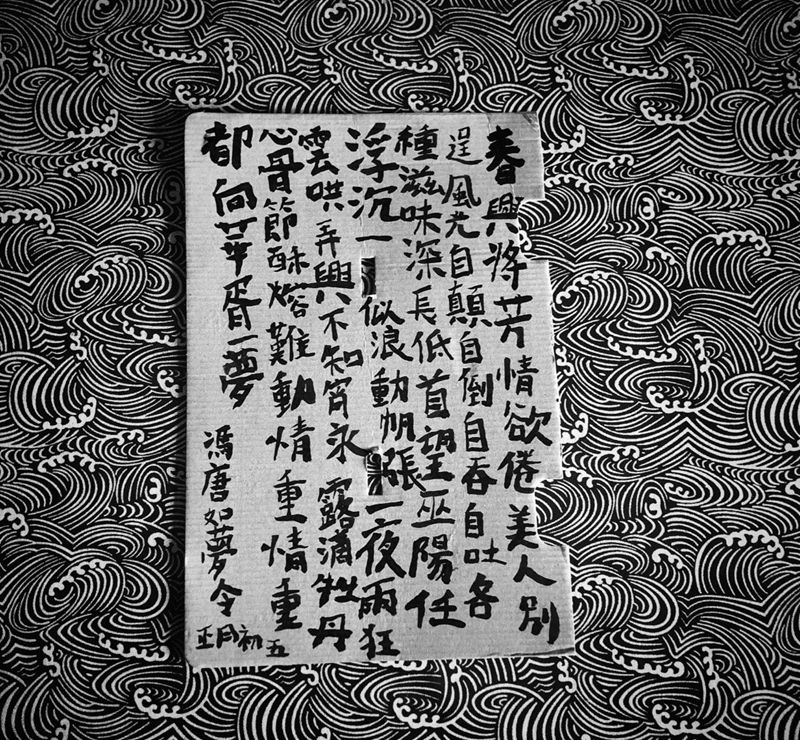 春興将芳情欲倦美人別
逞風光自顛自倒自吞自吐各
種滋味深長低首望巫陽任
浮沉一似浪動帆張一夜雨狂
雲哄弄興不知宵永露滴牡丹
心骨節酥熔難動情重情重
都向華胥一夢
馮唐如夢令
正月初五